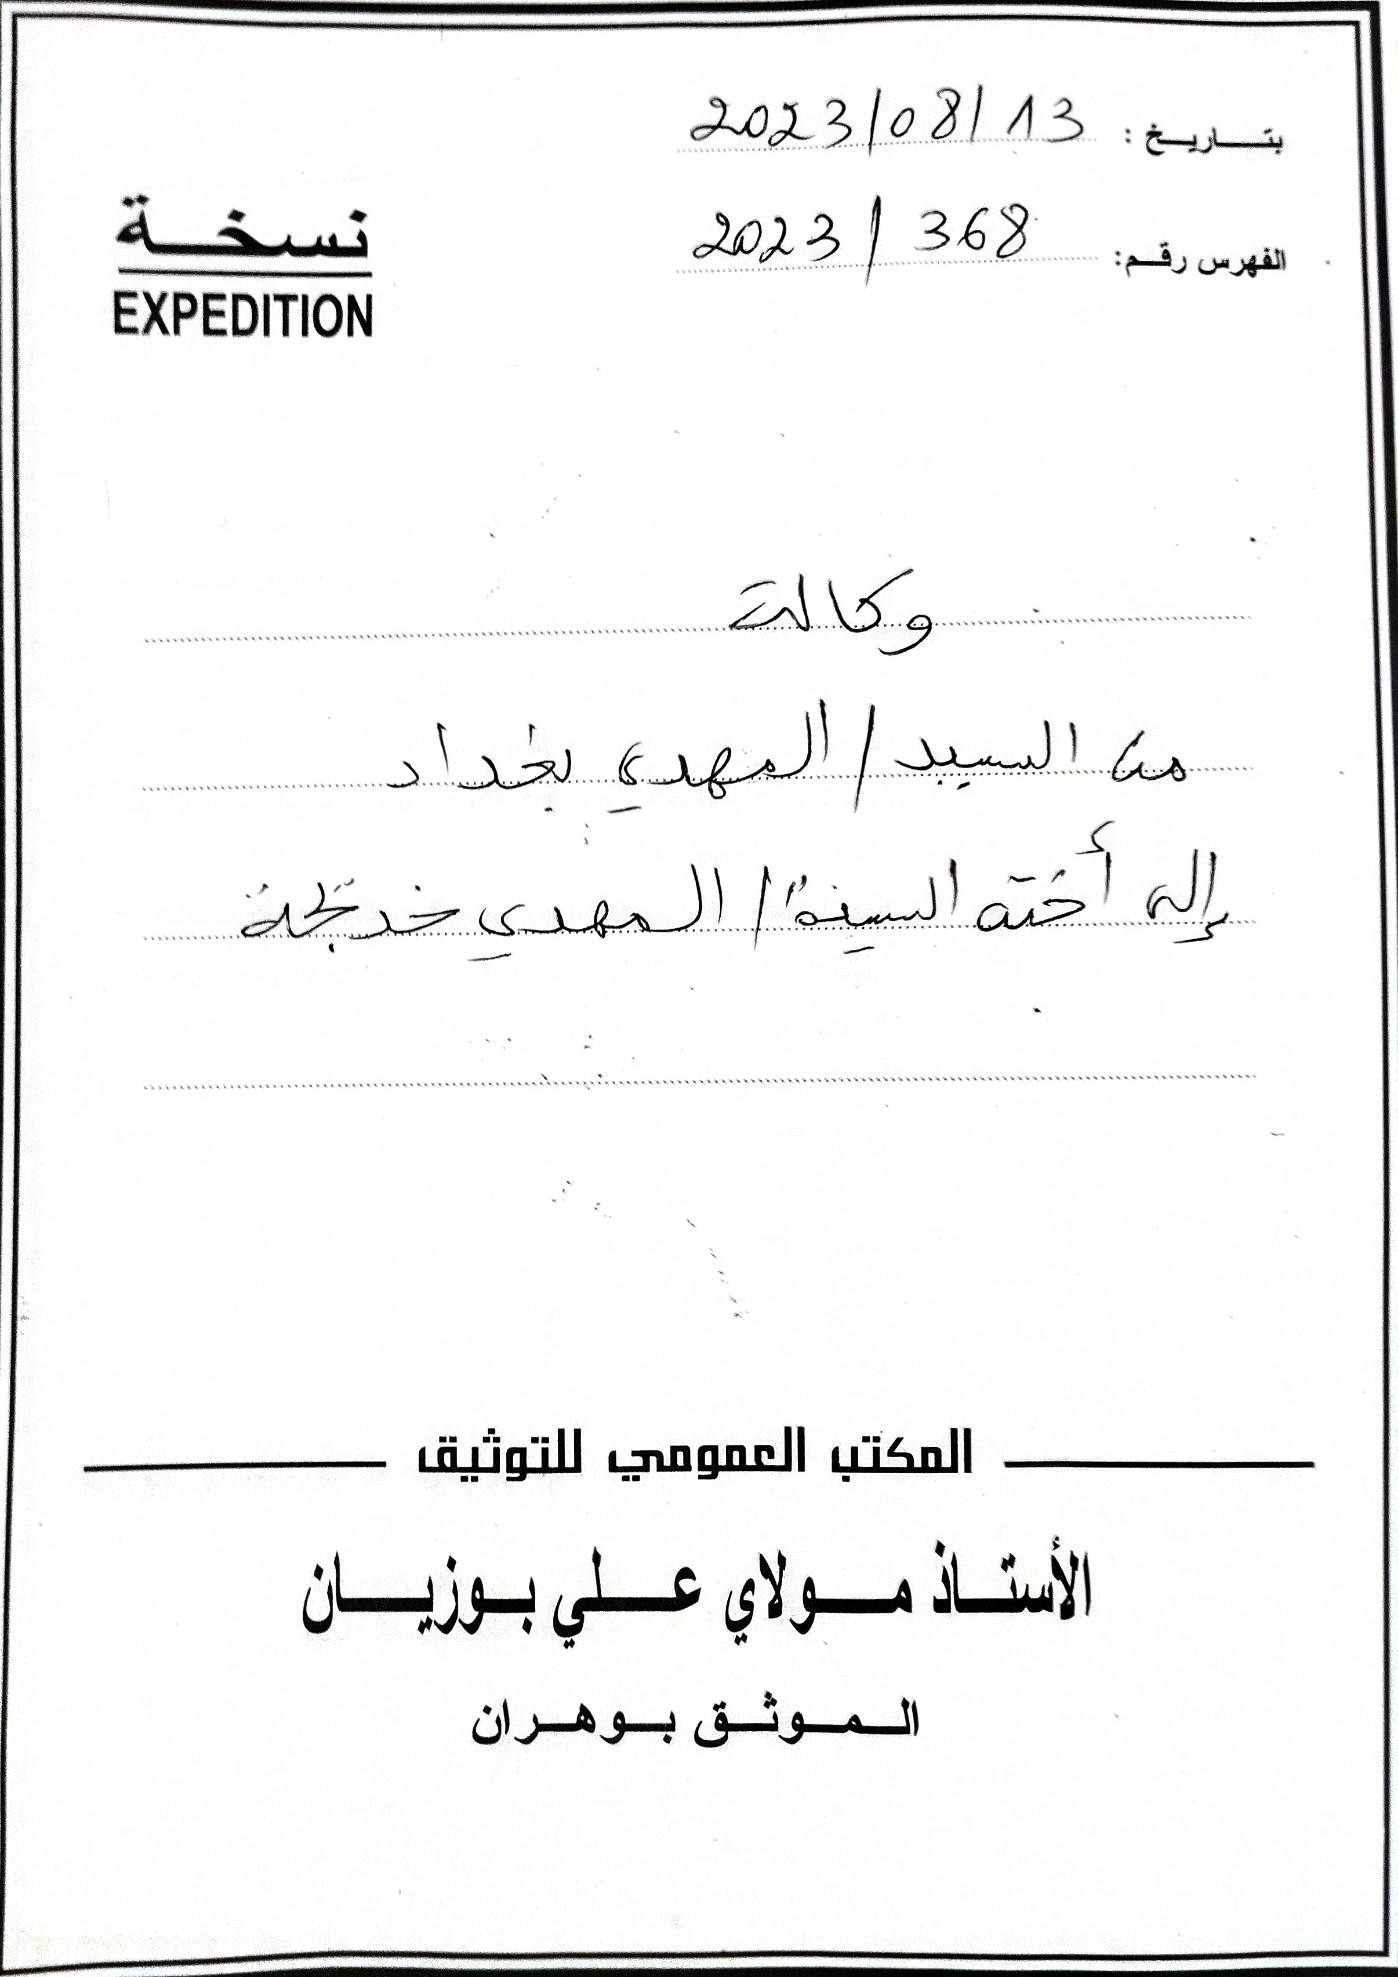 بتاريخ : 2023/08/13
الفهرس رقم: 2023/368
نسخة
EXPEDITION
وكالة
من السيد / المهدي بغداد
إلى أخته السيدة / المهدي خديجة
المكتب العمومي للتوثيق
الأستاذ مولاي علي بوزيان
الموثق بوهران